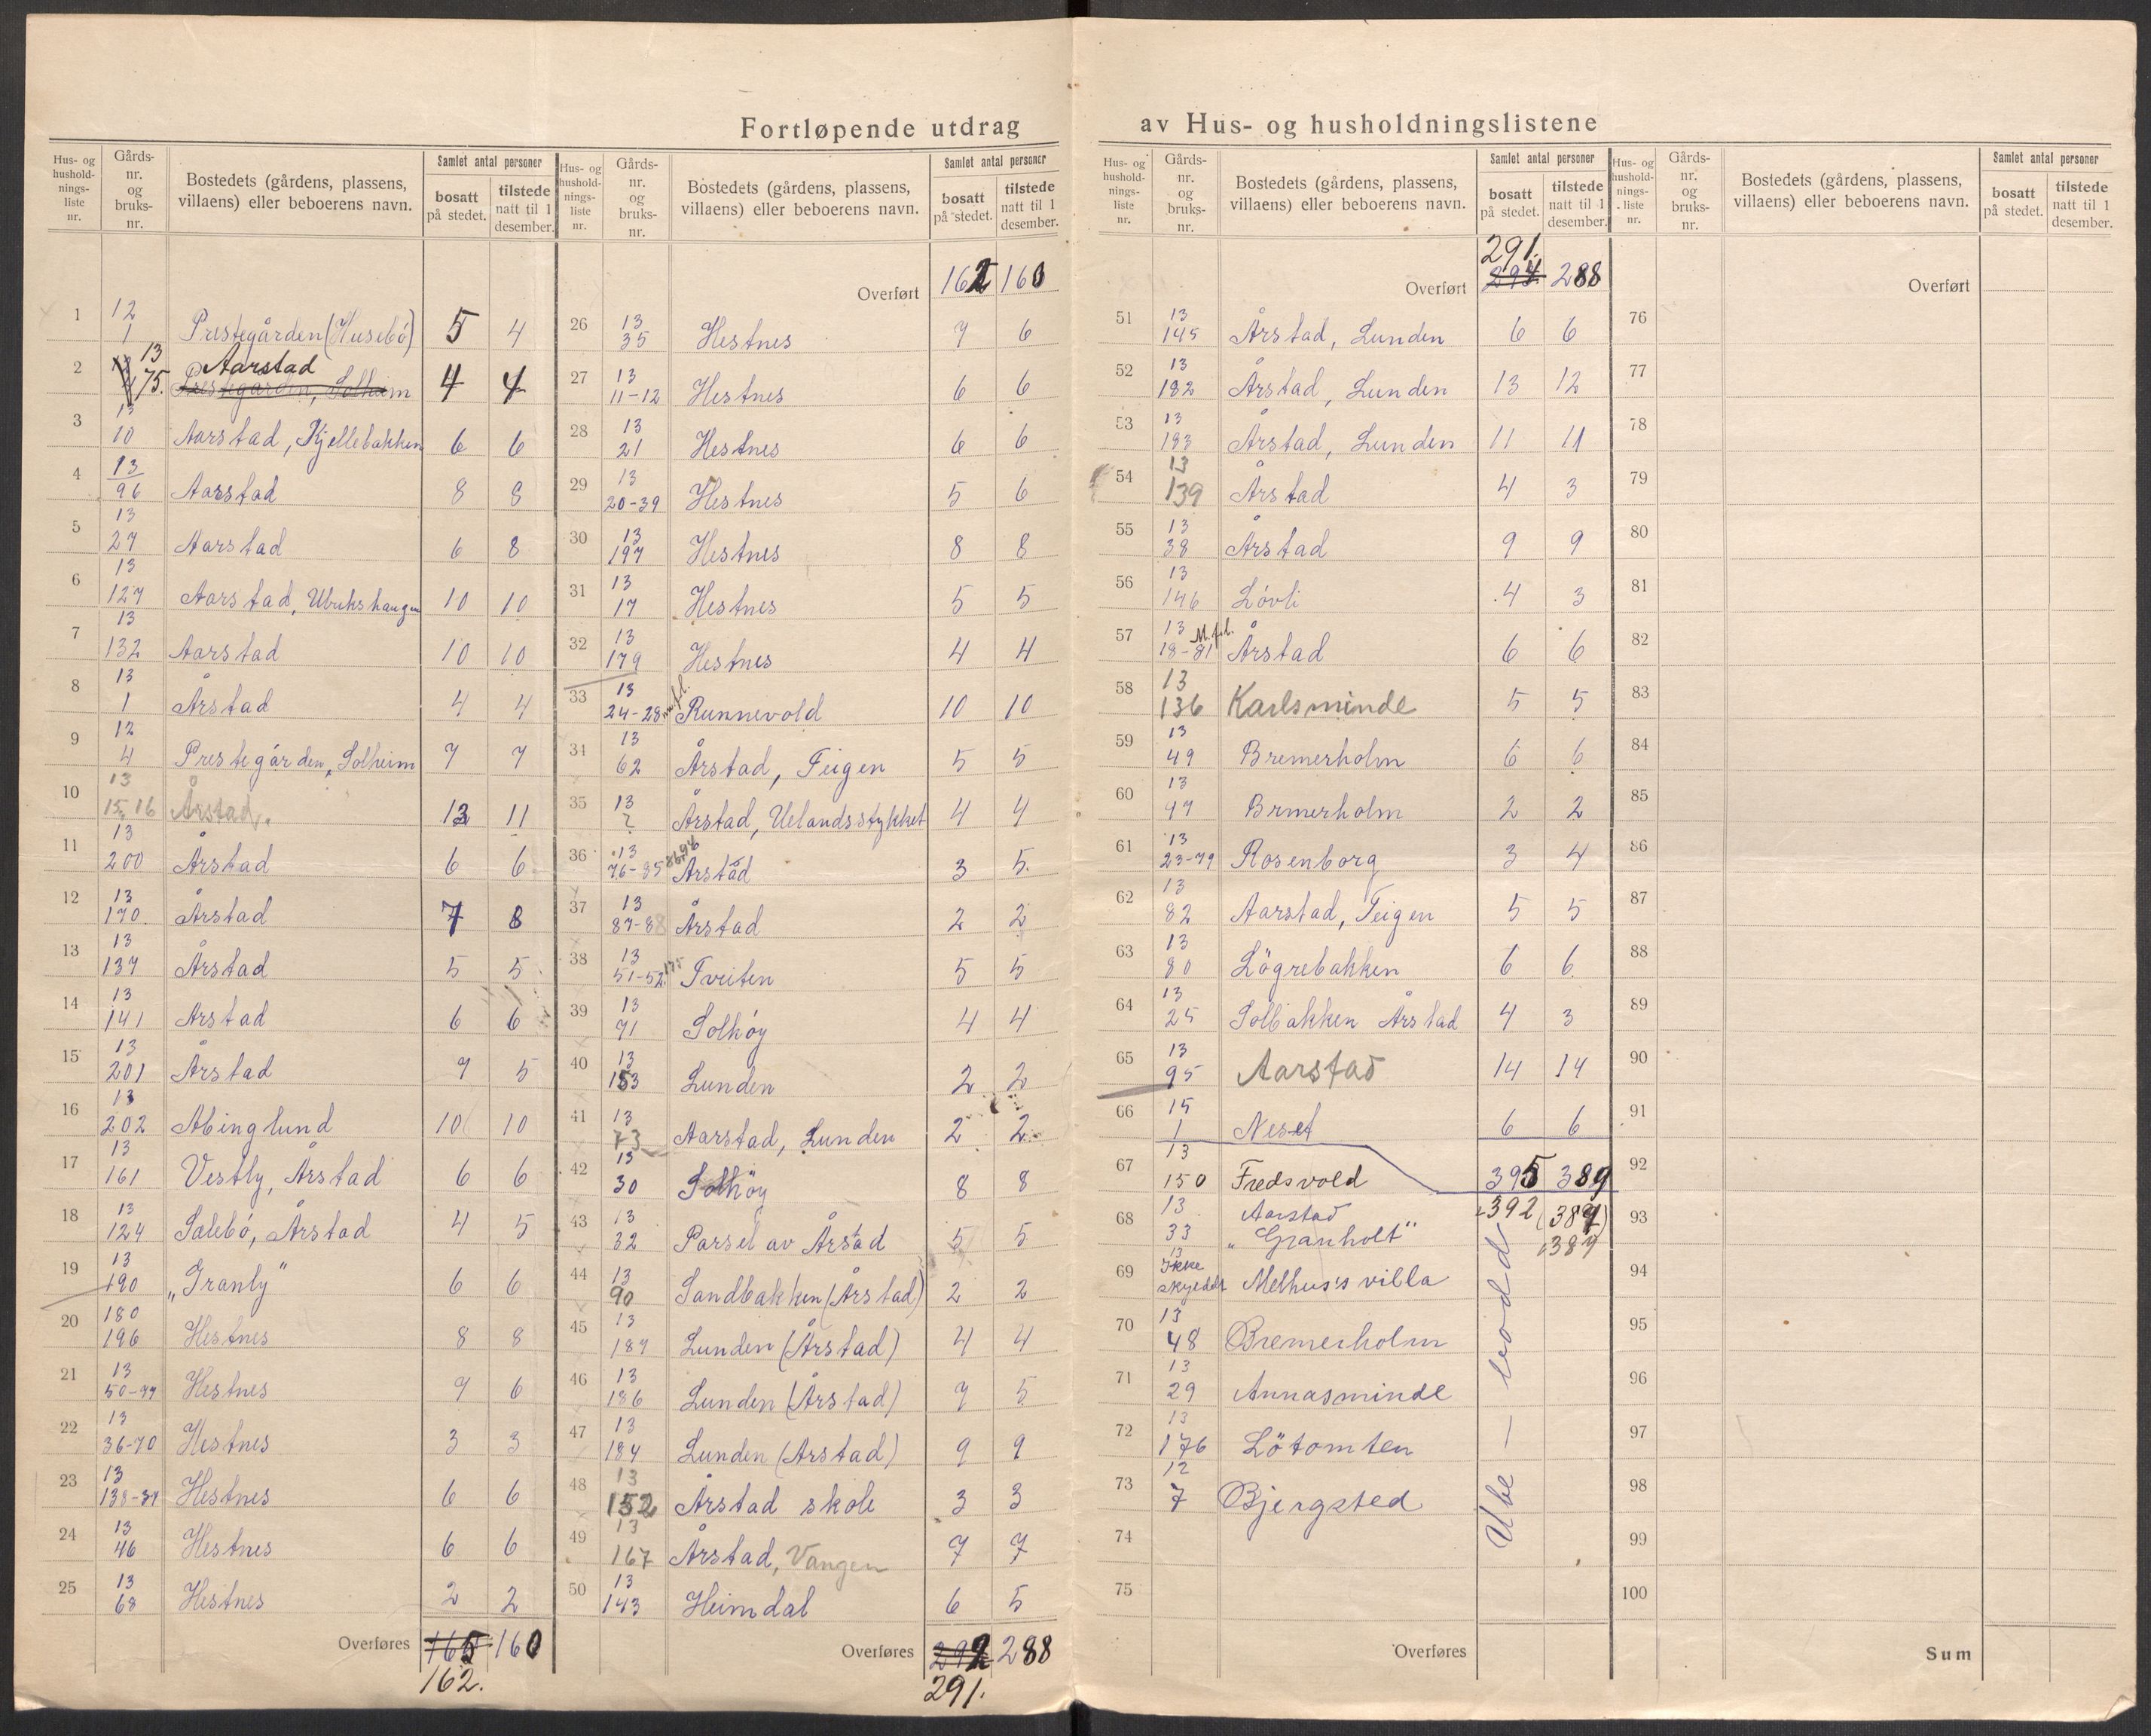 Fortløpende utdrag av Hus- og husholdningslistene
Hus- og hushold- nings- liste nr.
Gårds- nr. og bruks- nr.
Bostedets (gårdens, plassens, villaens) eller beboerens navn.
Samlet antal personer
bosatt på stedet.
tilstede natt til 1 desember.
1 12 1 Prestegården (Husebö) 5 4
2 13 75. Aarstad Prestegården, Solheim 4 4
3 13 10 Aarstad, Kjellebakken 6 6
4 13 96 Aarstad 8 8
5 13 27 Aarstad 6 8
6 13 127 Aarstad, 10 10
7 13 132 Aarstad 10 10
8 13 1 Årstad 4 4
9 12 4 Prestegården, Solheim 7 7
10 13 15, 16 Årstad. 13 11
11 13 200 Årstad 6 6
12 13 170. Årstad 7 8
13 13 137 Årstad 5 5
14 13 141 Arstad 6 6
15 13 201 Årstad 7 5
16 13 202 Abinglund 10 10
17 13 161 Vestly, Årstad 6 6
18 13 124 Salebö, Årstad 4 5
19 13 190 „Granly" 6 6
20 180 196 Hestnes 8 8
21 13 50-77 Hestnes 7 6
22 13 36-70 Hestnes 3 3
23 13 138-37 Hestnes 6 6
24 13 46 Hestnes 6 6
25 13 68 Hestnes 2 2
Overføres 165 160
162.
Hus- og hushold- nings- liste nr.
Gårds- nr. og bruks- nr.
Bostedets (gårdens, plassens, villaens) eller beboerens navn.
Samlet antal personer
bosatt på stedet.
tilstede natt til 1 desember.
Overført 162 160
26 13 35 Hestnes 7 6
27 13 11-12 Hestnes 6 6
28 13 21 Hestnes 6 6
29 13 20-39 Hestnes 5 6
30 13 197 Hestnes 8 8
31 13 17 Hestnes 5 5
32 13 179 Hestnes 4 4
33 13 24-28 m.fl. Runnevold 10 10
34 13 62 Årstad, Teigen 5 5
35 13 ? Årstad, Uelandsstykket 4 4
36 13 76-85 Årstad 3 5.
37 13 87-88 Årstad 2 2
38 13 51-52. 175 Tveiten 5 5
39 13 71 Solhöy 4 4
40 13 153 Lunden 2 2
41 13 73 Aarstad, Lunden 2 2
42 13 30 Solhöy 8 8
43 13 32 Parsel av Årstad 5 5
44 13 90 Sandbakken (Årstad) 2 2
45 13 187 Lunden (Årstad) 4 4
46 13 186 Lunden (Årstad) 7 5
47 13 184 Lunden (Arstad) 9 9
48 13 152 Årstad skole 3 3
49 13 167 Årstad, Vangen 7 7
50 13 143 Heimdal 6 5
Overføres 292 288
291.
Hus- og hushold- nings- liste nr.
Gårds- nr. og bruks- nr.
Bostedets (gårdens, plassens, villaens) eller beboerens navn.
Samlet antal personer
bosatt på stedet.
tilstede natt til 1 desember.
291.
Overført 288
51 13 145 Årstad, Lunden 6 6
52 13 182 Årstad, Lunden 13 12
53 13 183 Årstad, Lunden 11 11
54 13 139 Årstad 4 3
55 13 38 Årstad 9 9
56 13 146 Lövli 4 3
57 13 18-81 M.fl. Årstad 6 6
58 13 136 Karlsminde 5 5
59 13 49 Bremerholm 6 6
60 13 97 Bremerholm 2 2
61 13 23-79 Rosenborg 3 4
62 13 82 Aarstad, Teigen 5 5
63 13 80 Lögrebakken 6 6
64 13 25 Solbakken Årstad 4 3
65 13 95 Aarstad 14 14
66 15 1 Neset 6 6
67 13 150 Fredsvold 395 389
68 13 33 Aarstad „Granholt" 392 (387) 387
69 13 Ikke skyeldt Melhus's villa
70 13 48 Bremerholm
71 13 29 Annasminde
72 13 176 Lötomten
73 12 7 Bjergsted
Ube - bodd
74
75
Overføres
Hus- og hushold- nings- liste nr.
Gårds- nr. og bruks- nr.
Bostedets (gårdens, plassens, villaens) eller beboerens navn.
Samlet antal personer
bosatt på stedet.
tilstede natt til 1 desember.
Overført
76
77
78
79
80
81
82
83
84
85
86
87
88
89
90
91
92
93
94
95
96
97
98
99
100
Sum